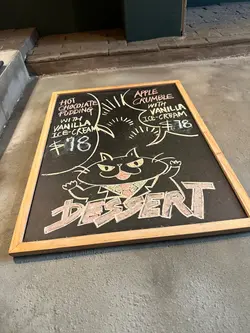 HOT
CHOCOLATE
PUDDING
WITH
VANILLA
ICE-CREAM
¥78
APPLE
CRUMBLE
WITH
VANILLA
ICE-CREAM
¥78
DESSERT